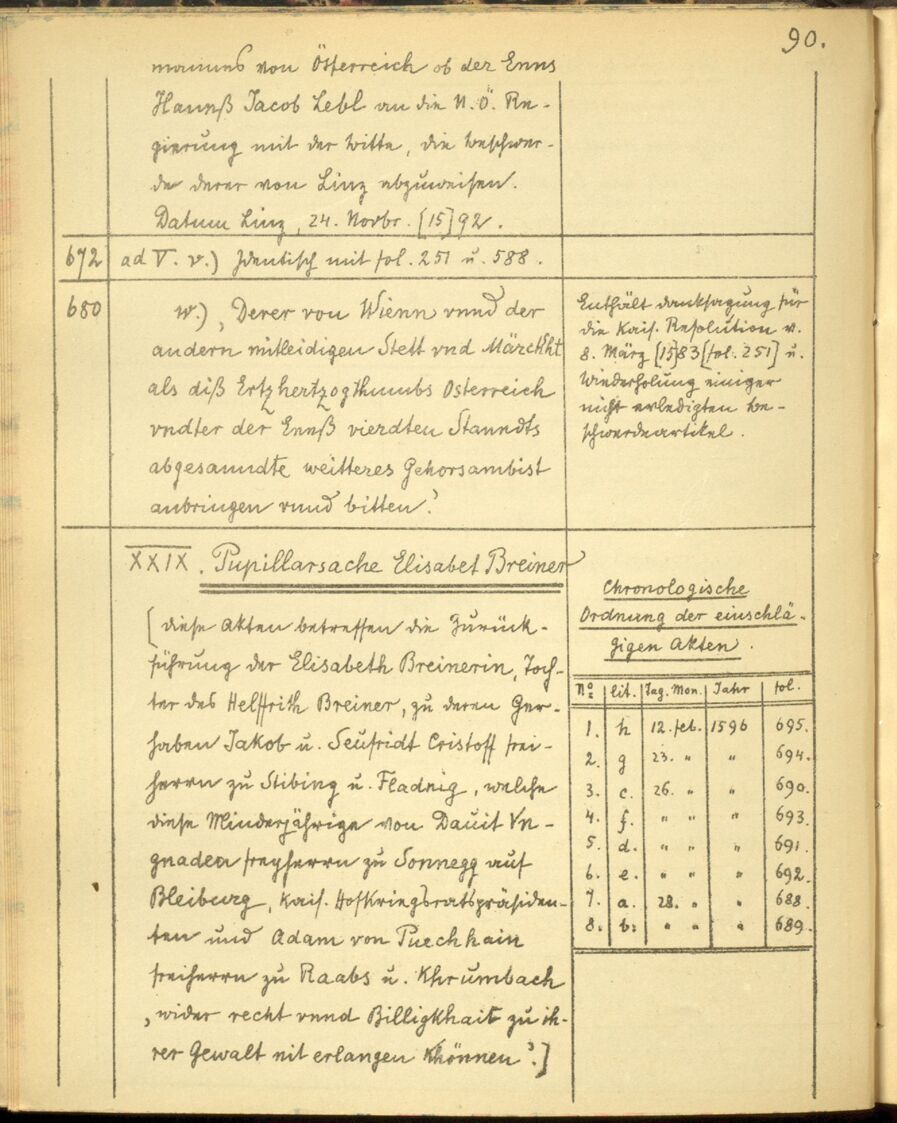 90.
mannes von Österreich ob der Enns
Hannß Jacob Lebl an die N. Ö. Re-
gierung mit der Bitte, die Beschwer-
de derer von Linz abzuweisen.
Datum Linz, 24. Novbr. [15]92.
672 ad V. v.) Identisch mit fol. 251 u. 588.
680 w.) ‚Derer von Wienn vnnd der
andern mitleidigen Stett vnd Märckht
als diß Ertzhertzogthumbs Osterreich
vndter der Ennß vierdten Stanndts
abgesanndte weitteres Gehorsambist
anbringen vnnd bitten.‘
Enthält Danksagung für
die kais. Resolution v.
8. März [15]83 [fol. 251] u.
Wiederholung einiger
nicht erledigten Be-
schwerdeartikel.
XXIX. Pupillarsache Elisabet Breiner
[Diese Akten betreffen die Zurück-
führung der Elisabeth Breinerin, Toch-
ter des Helffrith Breiner, zu deren Ger-
haben Jakob u. Seufridt Cristoff frei-
herrn zu Stibing u. Fladnig, welche
diese Minderjährige von Dauit Vn-
gnaden freyherrn zu Sonnegg auf
Bleiburg, kais. Hofkriegsratspräsiden-
ten und Adam von Puechhaim
freiherrn zu Raabs u. Khrumbach
‚wider recht vnnd Billigkhait zu ih-
rer Gewalt nit erlangen khönnen‘.]
Chronologische
Ordnung der einschlä-
gigen Akten.
No: lit. Tag. Mon. Jahr fol.
1. h 12. feb. 1596 695.
2. g 23. " " 694.
3. c. 26. " " 690.
4. f. " " " 693.
5. d. " " " 691.
6. e. " " " 692.
7. a. 28. " " 688.
8. b. " " " 689.